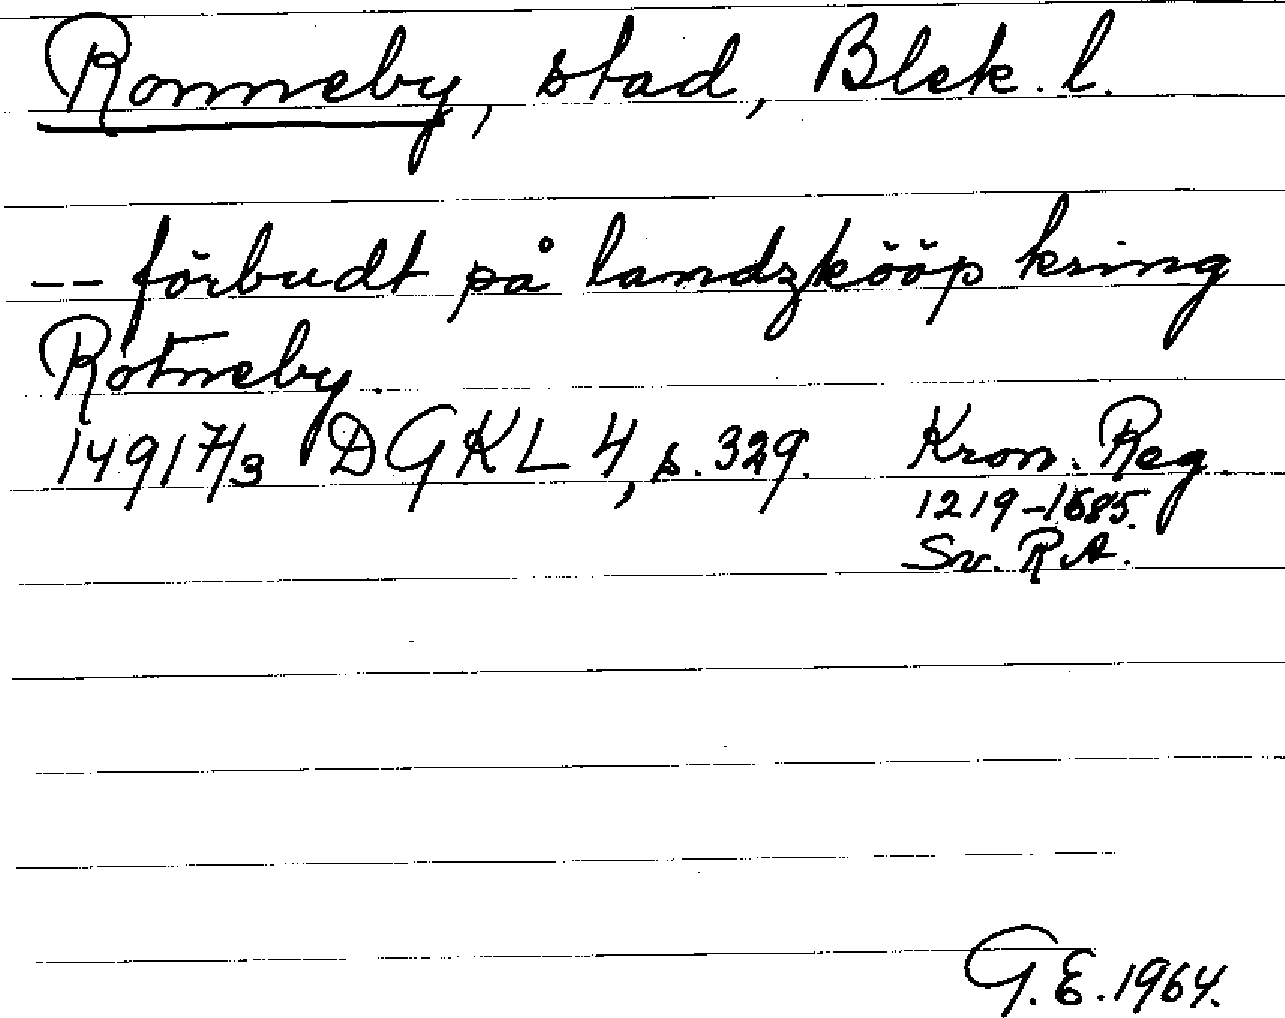 Ronneby, stad, Blek. l.
-- förbudt på landzkööp kring
Rotneby.
1491 7/3 DGKL 4, s. 329. Kron. Reg.
1219-1685.
Sv. R A.
G.E. 1964.